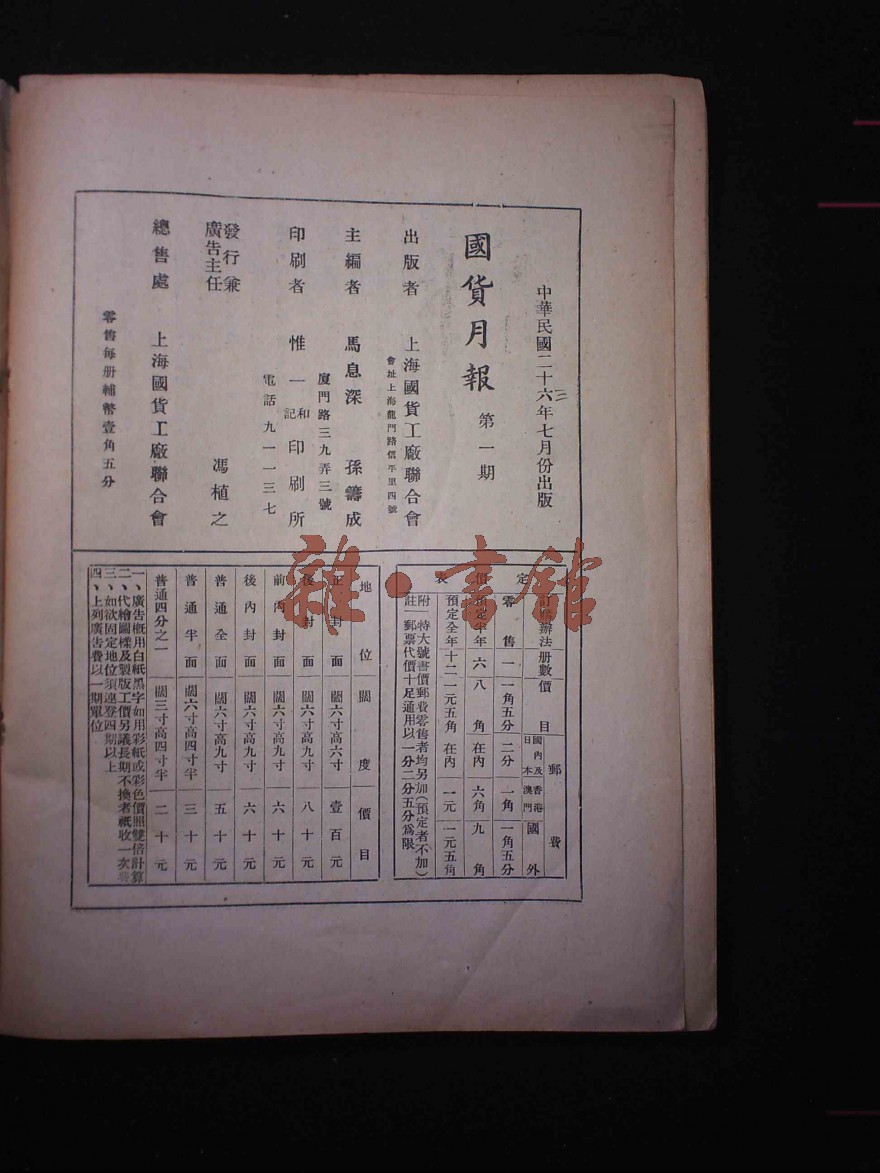 中華民國二十六年七月份出版
三
國貨月報 第一期
出版者 上海國貨工廠聯合會
會址上海龍門路信平里四號
主編者 馬息深 孫籌成
廈門路三九弄三號
印刷者 惟一和記印刷所
電話 九一一三七
發行兼
廣告主任 馮植之
總售處 上海國貨工廠聯合會
零售每册輔幣壹角五分
定價表
訂購辦法 册數 價目 郵費
國內及日本 香港澳門 國外
零售 一 一角五分 二分 一角 一角五分
預定半年 六 八角 在內 六角 九角
預定全年 十二 一元五角 在內 一元 一元五角
附註
特大號書價郵費零售者均另加(預定者不加)
郵票代價十足通用以一分二分五分爲限
地位 闊度 價目
正封面 闊六寸高六寸 壹百元
後封面 闊六寸高九寸 八十元
前內封面 闊六寸高九寸 六十元
後內封面 闊六寸高九寸 六十元
普通全面 闊六寸高九寸 五十元
普通半面 闊六寸高四寸半 三十元
普通四分之一 闊三寸高四寸半 二十元
一、廣告概用白紙黑字如用彩紙或彩色價照雙倍計算
二、代繪圖樣及製版工價另議長期不換者祇收一次
三、如欲固定地位須連登四期以上
四、上列廣告費以一期單位
雜·書館